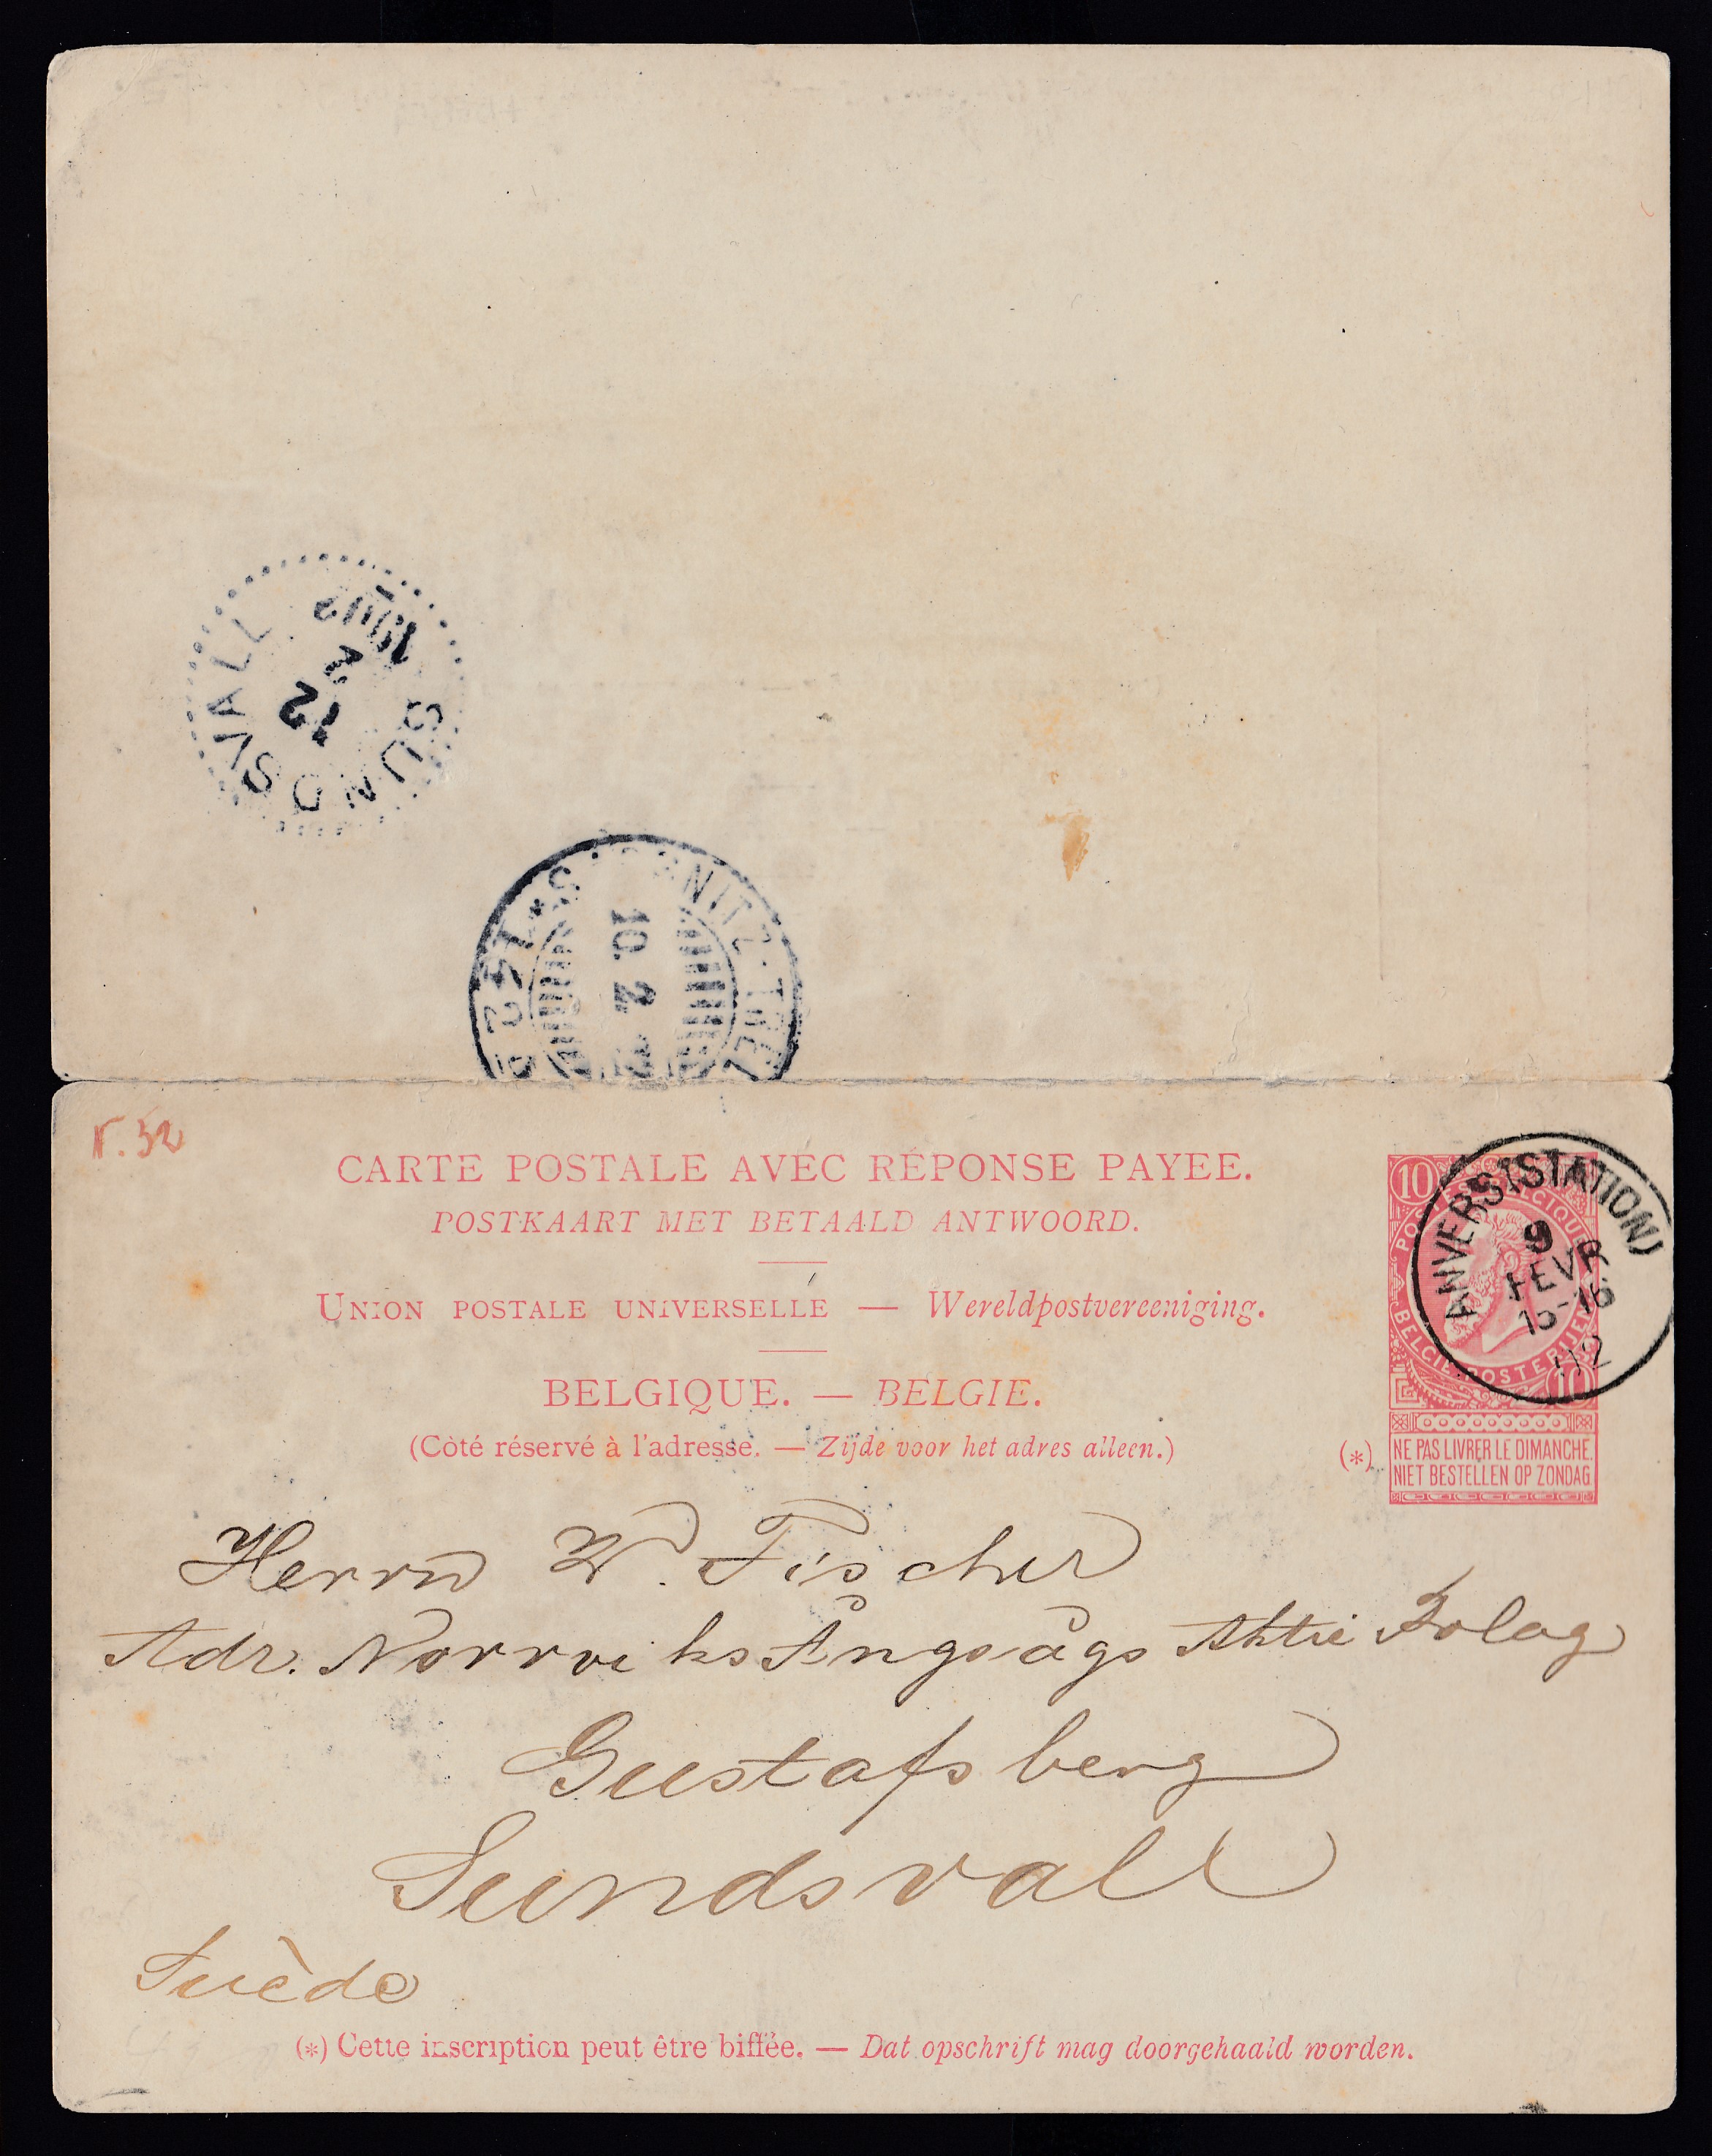 SUNDSVALL
12
2
1902
10. 2.
N. 52
CARTE POSTALE AVEC RÉPONSE PAYÉE.
POSTKAART MET BETAALD ANTWOORD.
UNION POSTALE UNIVERSELLE — Wereldpostvereeniging.
BELGIQUE. — BELGIE.
(Côté réservé à l'adresse. — Zijde voor het adres alleen.)
10
POSTES BELGIQUE
BELGIË POSTERIJEN
10
ANVERS (STATION)
9
FEVR
15-16
02
(*) NE PAS LIVRER LE DIMANCHE.
NIET BESTELLEN OP ZONDAG
Herrn W. Fischer
Adr. Norrviks Ångsågs Aktie Bolag
Gustafsberg
Sundsvall
Suède
(*) Cette inscription peut être biffée. — Dat opschrift mag doorgehaald worden.